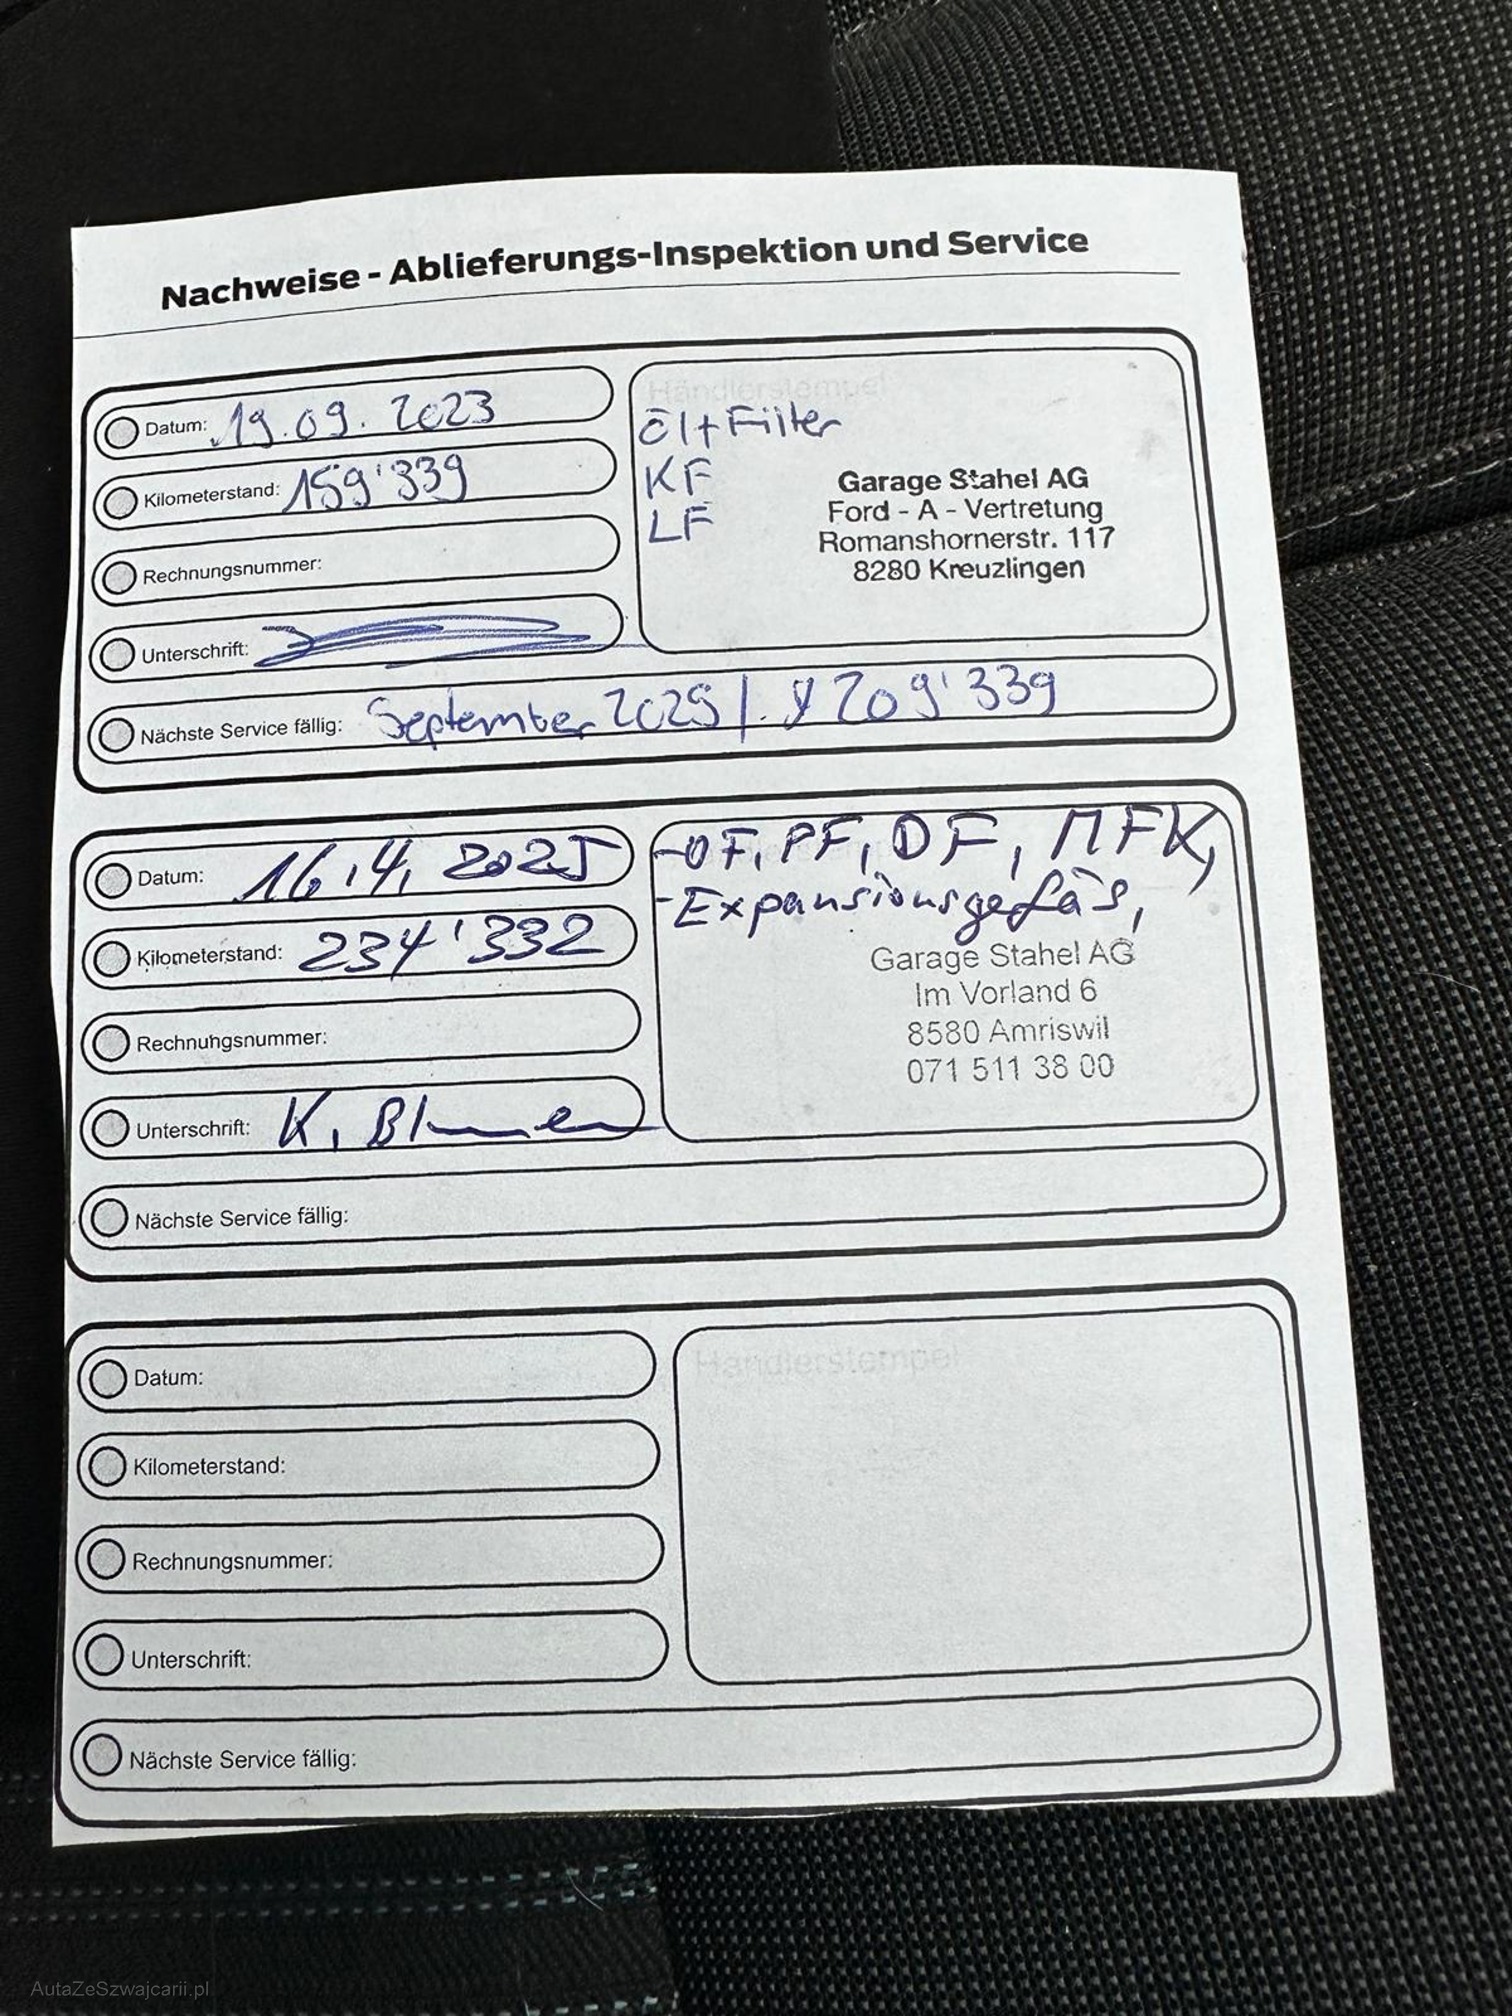 Nachweise - Ablieferungs-Inspektion und Service
Datum: 19.09.2023
Kilometerstand: 159'339
Rechnungsnummer:
Unterschrift:
Händlerstempel
Öl+Filter
KF
LF
Garage Stahel AG
Ford - A - Vertretung
Romanshornerstr. 117
8280 Kreuzlingen
Nächste Service fällig: September 2025 / 209'339
Datum: 16.4.2025
Kilometerstand: 234'332
Rechnungsnummer:
Unterschrift: K.
-OF, PF, DF, MFK,
-Expansionsgefäs,
Garage Stahel AG
Im Vorland 6
8580 Amriswil
071 511 38 00
Nächste Service fällig:
Datum:
Kilometerstand:
Rechnungsnummer:
Unterschrift:
Händlerstempel
Nächste Service fällig:
AutaZeSzwajcarii.pl